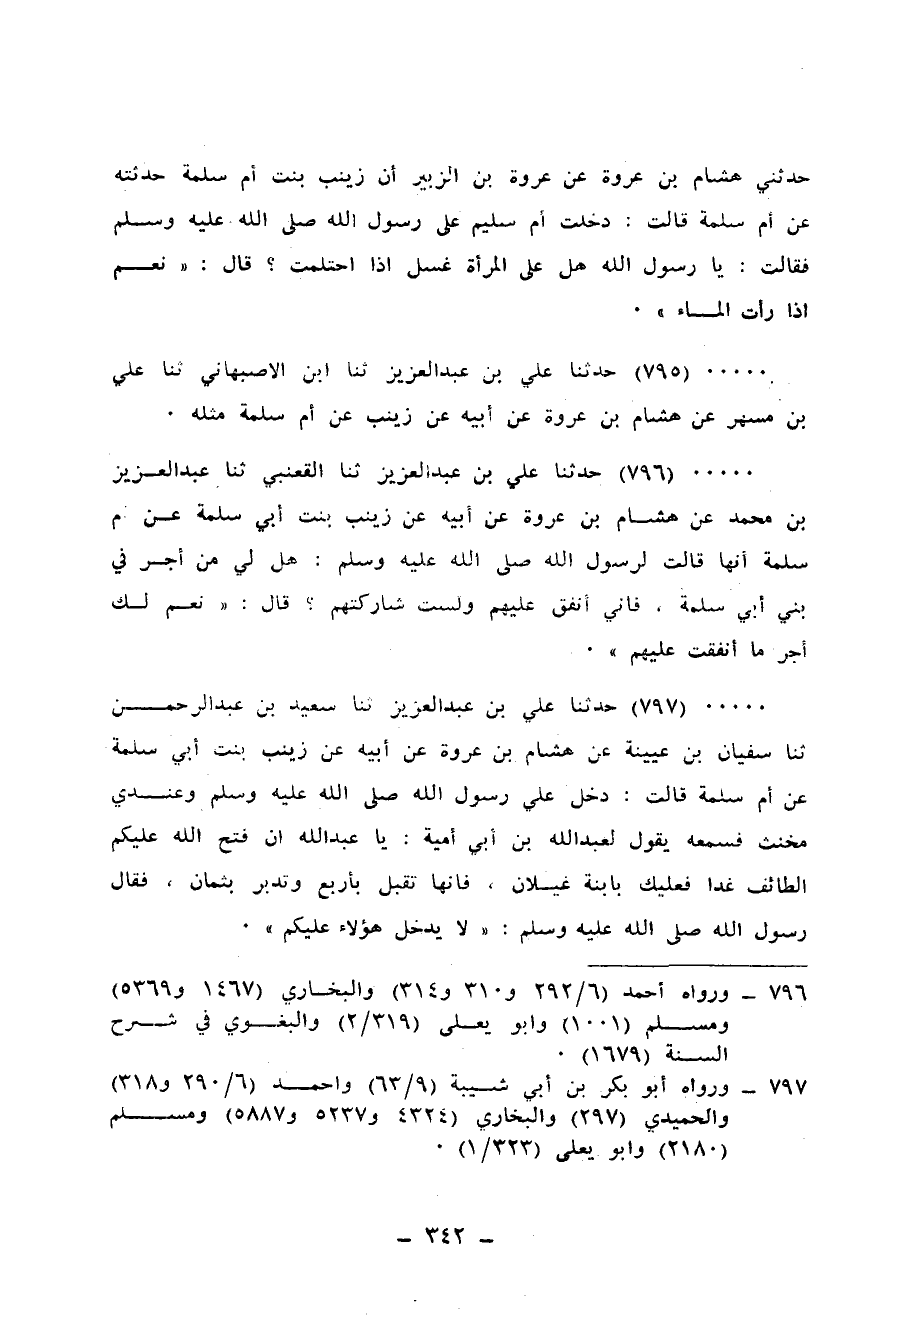 حدثني هشام بن عروة عن عروة بن الزبير أن زينب بنت أم سلمة حدثته
عن أم سلمة قالت : دخلت أم سليم على رسول الله صلى الله عليه وسلم
فقالت : يا رسول الله هل على المرأة غسل اذا احتلمت ؟ قال : « نعم
اذا رأت الماء » ٠
٠٠٠٠٠ (٧٩٥) حدثنا علي بن عبدالعزيز ثنا ابن الاصبهاني ثنا علي
بن مسهر عن هشام بن عروة عن أبيه عن زينب عن أم سلمة مثله ٠
٠٠٠٠٠ (٧٩٦) حدثنا علي بن عبدالعزيز ثنا القعنبي ثنا عبدالعزيز
بن محمد عن هشام بن عروة عن أبيه عن زينب بنت أبي سلمة عن م
سلمة أنها قالت لرسول الله صلى الله عليه وسلم : هل لي من أجر في
بني أبي سلمة ، فاني أنفق عليهم ولست شاركتهم ؟ قال : « نعم لك
أجر ما أنفقت عليهم » ٠
٠٠٠٠٠ (٧٩٧) حدثنا علي بن عبدالعزيز ثنا سعيد بن عبدالرحمن
ثنا سفيان بن عيينة عن هشام بن عروة عن أبيه عن زينب بنت أبي سلمة
عن أم سلمة قالت : دخل علي رسول الله صلى الله عليه وسلم وعندي
مخنث فسمعه يقول لعبدالله بن أبي أمية : يا عبدالله ان فتح الله عليكم
الطائف غدا فعليك بابنة غيلان ، فانها تقبل بأربع وتدبر بثمان ، فقال
رسول الله صلى الله عليه وسلم : « لا يدخل هؤلاء عليكم » ٠
٧٩٦ ــ ورواه أحمد (٢٩٢/٦ و٣١٠ و٣١٤) والبخاري (١٤٦٧ و٥٣٦٩)
ومسلم (١٠٠١) وابو يعلى (٢/٣١٩) والبغوي في شرح
السنة (١٦٧٩) ٠
٧٩٧ ــ ورواه أبو بكر بن أبي شيبة (٦٣/٩) واحمد (٢٩٠/٦ و٣١٨)
والحميدي (٢٩٧) والبخاري (٤٣٢٤ و٥٢٣٧ و٥٨٨٧) ومسلم
(٢١٨٠) وابو يعلى (١/٣٢٣) ٠
ــ ٣٤٢ ــ